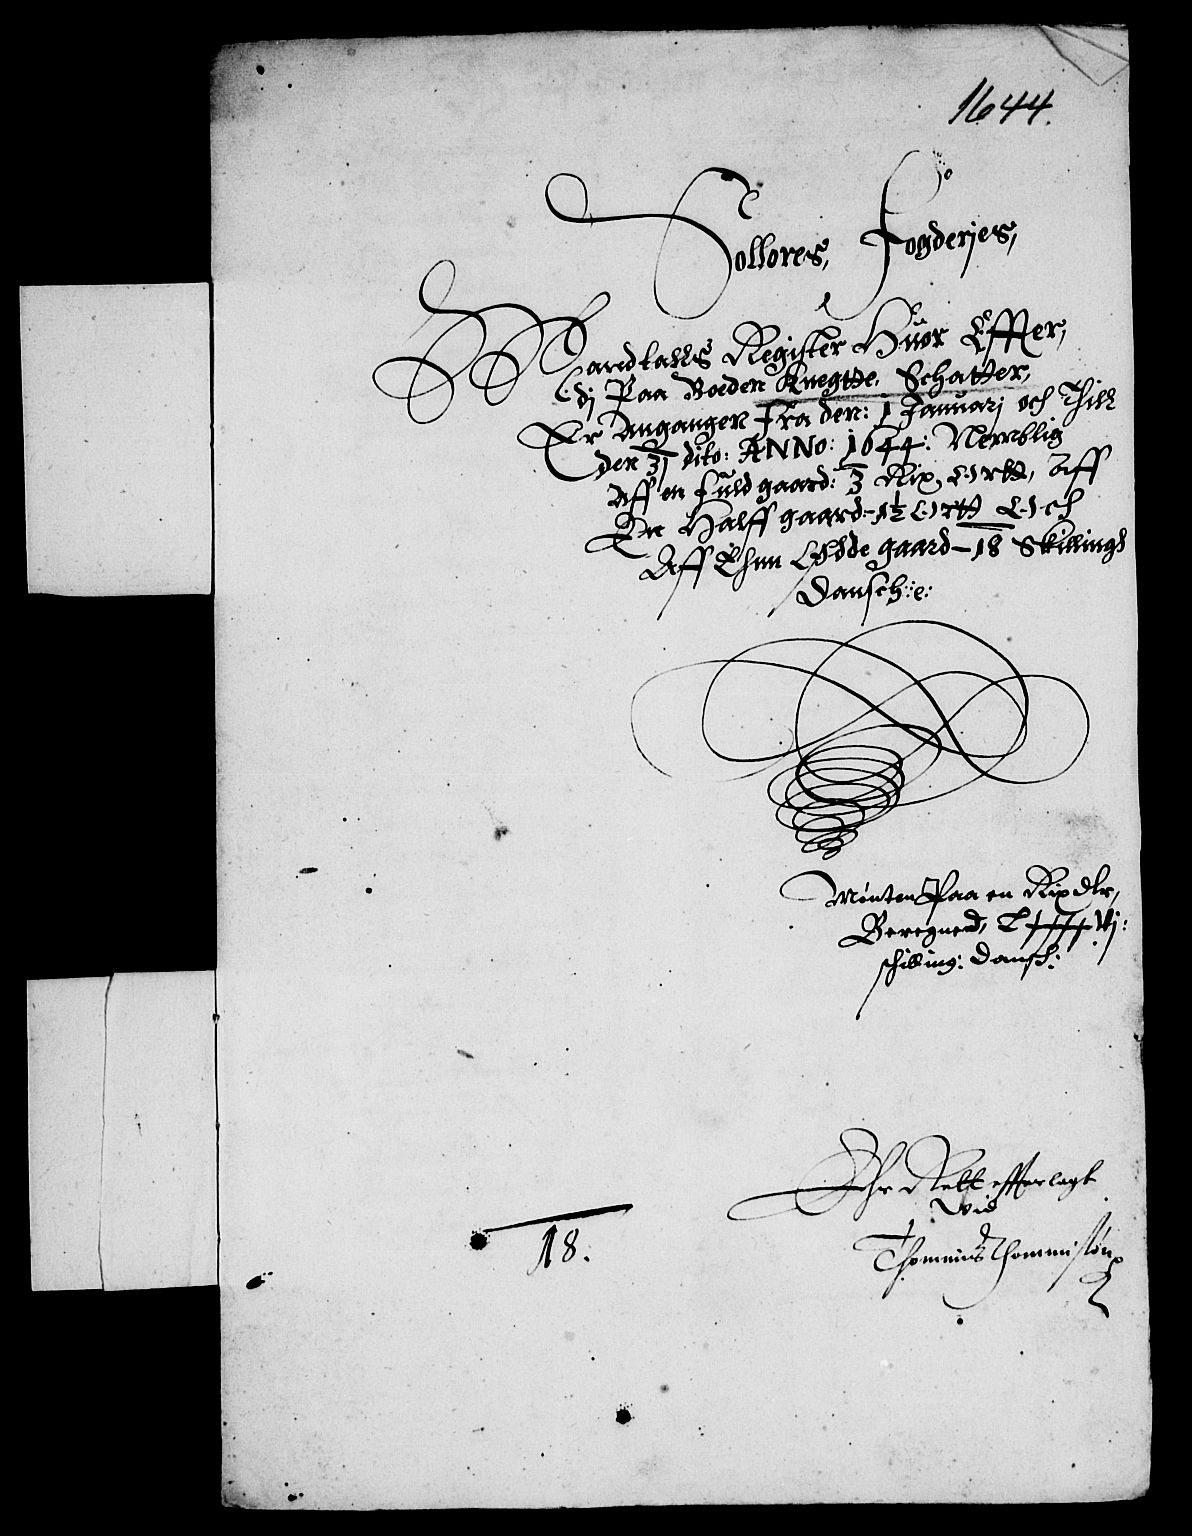 1644.
Sollores, Fogderjes,
Mandtalls Register Huor Effter,
dj Paa Boeden Knegtte, Schatter,
Er Angangen Fra den: 1 Januarj och Thill
den 31 dito: ANNo: 1644: Nemblig
Aff en fuld gaard: 3 Rix, Ortt, Aff
En Halff gaard - 1½ Ortt Och
Aff Ehnn Øde gaard - 18 Skillingh
Dansch:e:
Mönten Paa en Rixdlr,
Beregned,
schilling: Dansch:
Ehr Rett effterlagt
vid
Thommis Thommissön
18.